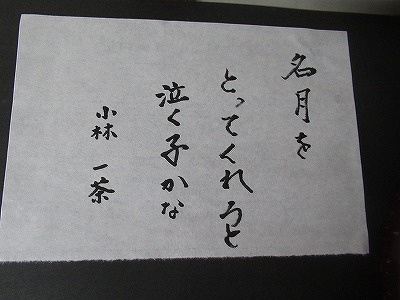 名月を
とってくれろと
泣く子かな
小林一茶